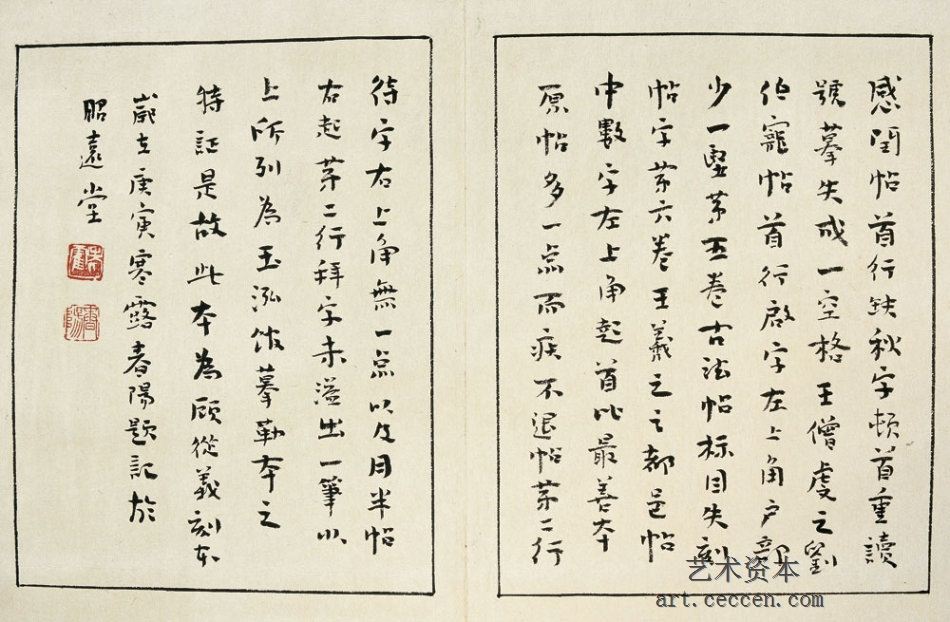 感閏帖首行缺秋字頓首重讀
號摹失成一空格王僧虔之劉
伯寵帖首行啟字左上角户部
少一竪苐五卷古法帖标目失刻
帖字苐六卷王羲之之都邑帖
中數字左上角起首比最善本
原帖多一点而疾不退帖苐二行
待字右上角無一点以及月半帖
右起苐二行拜字未溢出一筆以
上所列為玉泓馆摹勒本之
特証是故此本為顾從義刻本
歲在庚寅寒露春陽題記於
昭遠堂
艺术资本
art.ceccen.com